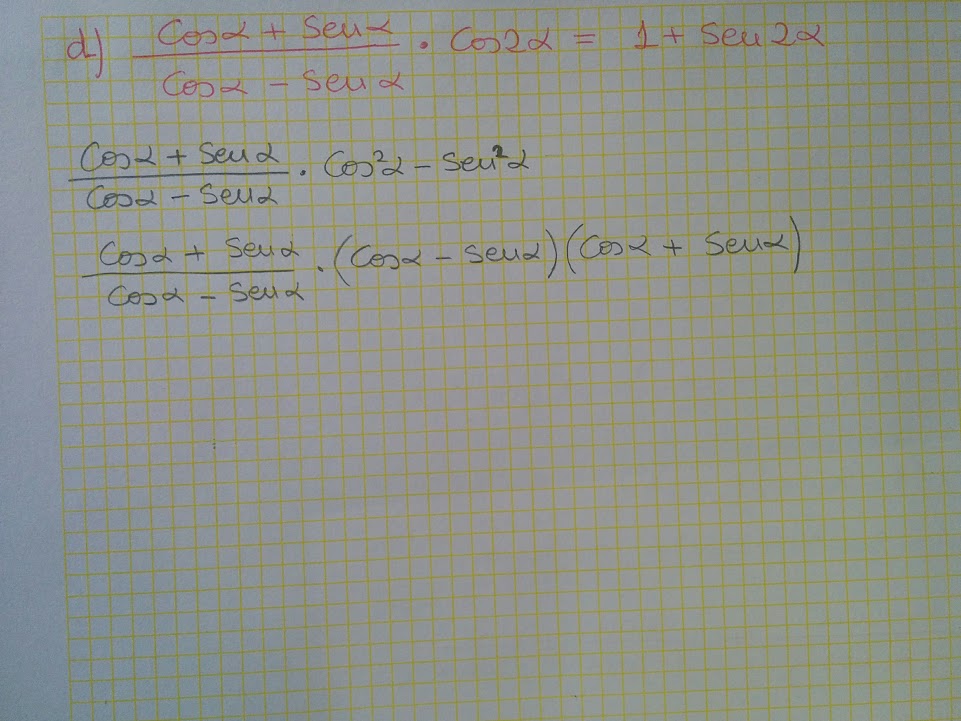 d) (Cosα + Senα)/(Cosα - Senα) · Cos2α = 1 + Sen2α
(Cosα + Senα)/(Cosα - Senα) · Cos²α - Sen²α
(Cosα + Senα)/(Cosα - Senα) · (Cosα - Senα)(Cosα + Senα)